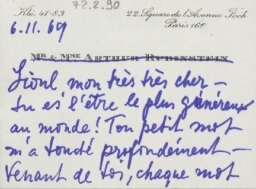 72.2.90
Klé. 41-83
22 Square de l'Avenue Foch
Paris 16e
6.11.69
Mr & Mme Arthur Rubinstein
Lionl mon très très cher –
tu es l'être le plus généreux
au monde! Ton petit mot
m'a touché profondément –
Venant de toi, chaque mot